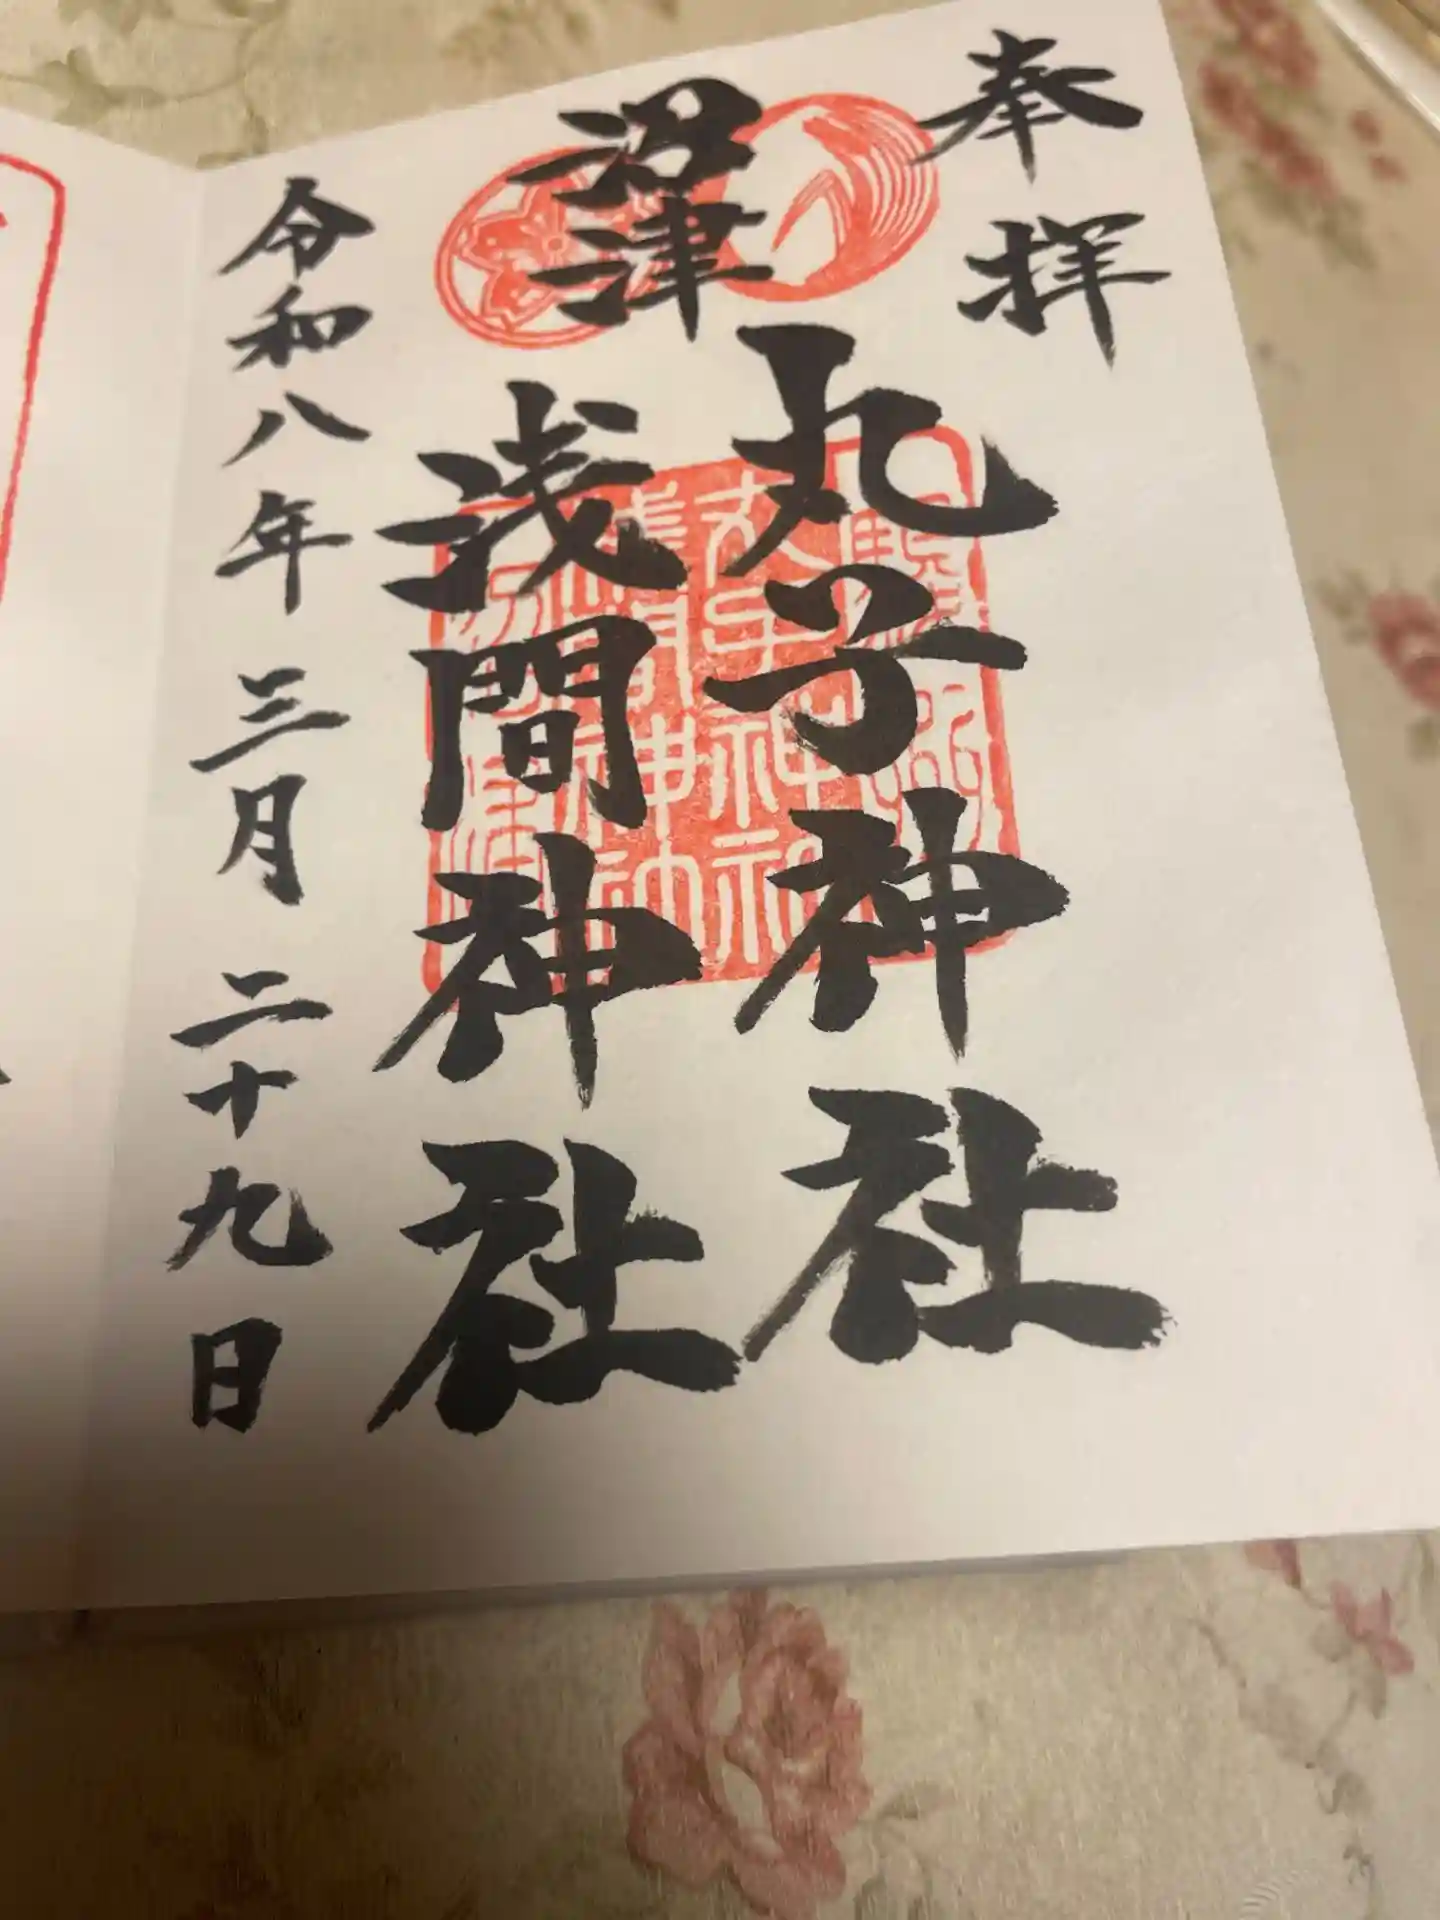 奉拝
沼津
丸子神社
浅間神社
令和八年三月二十九日